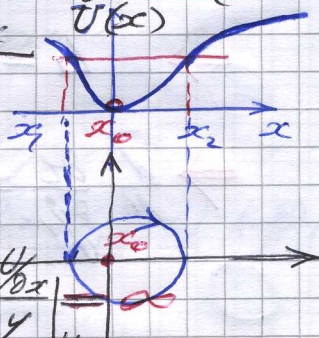 U(x)
x₁ x₀ x₂ x
x₀
∂x
y